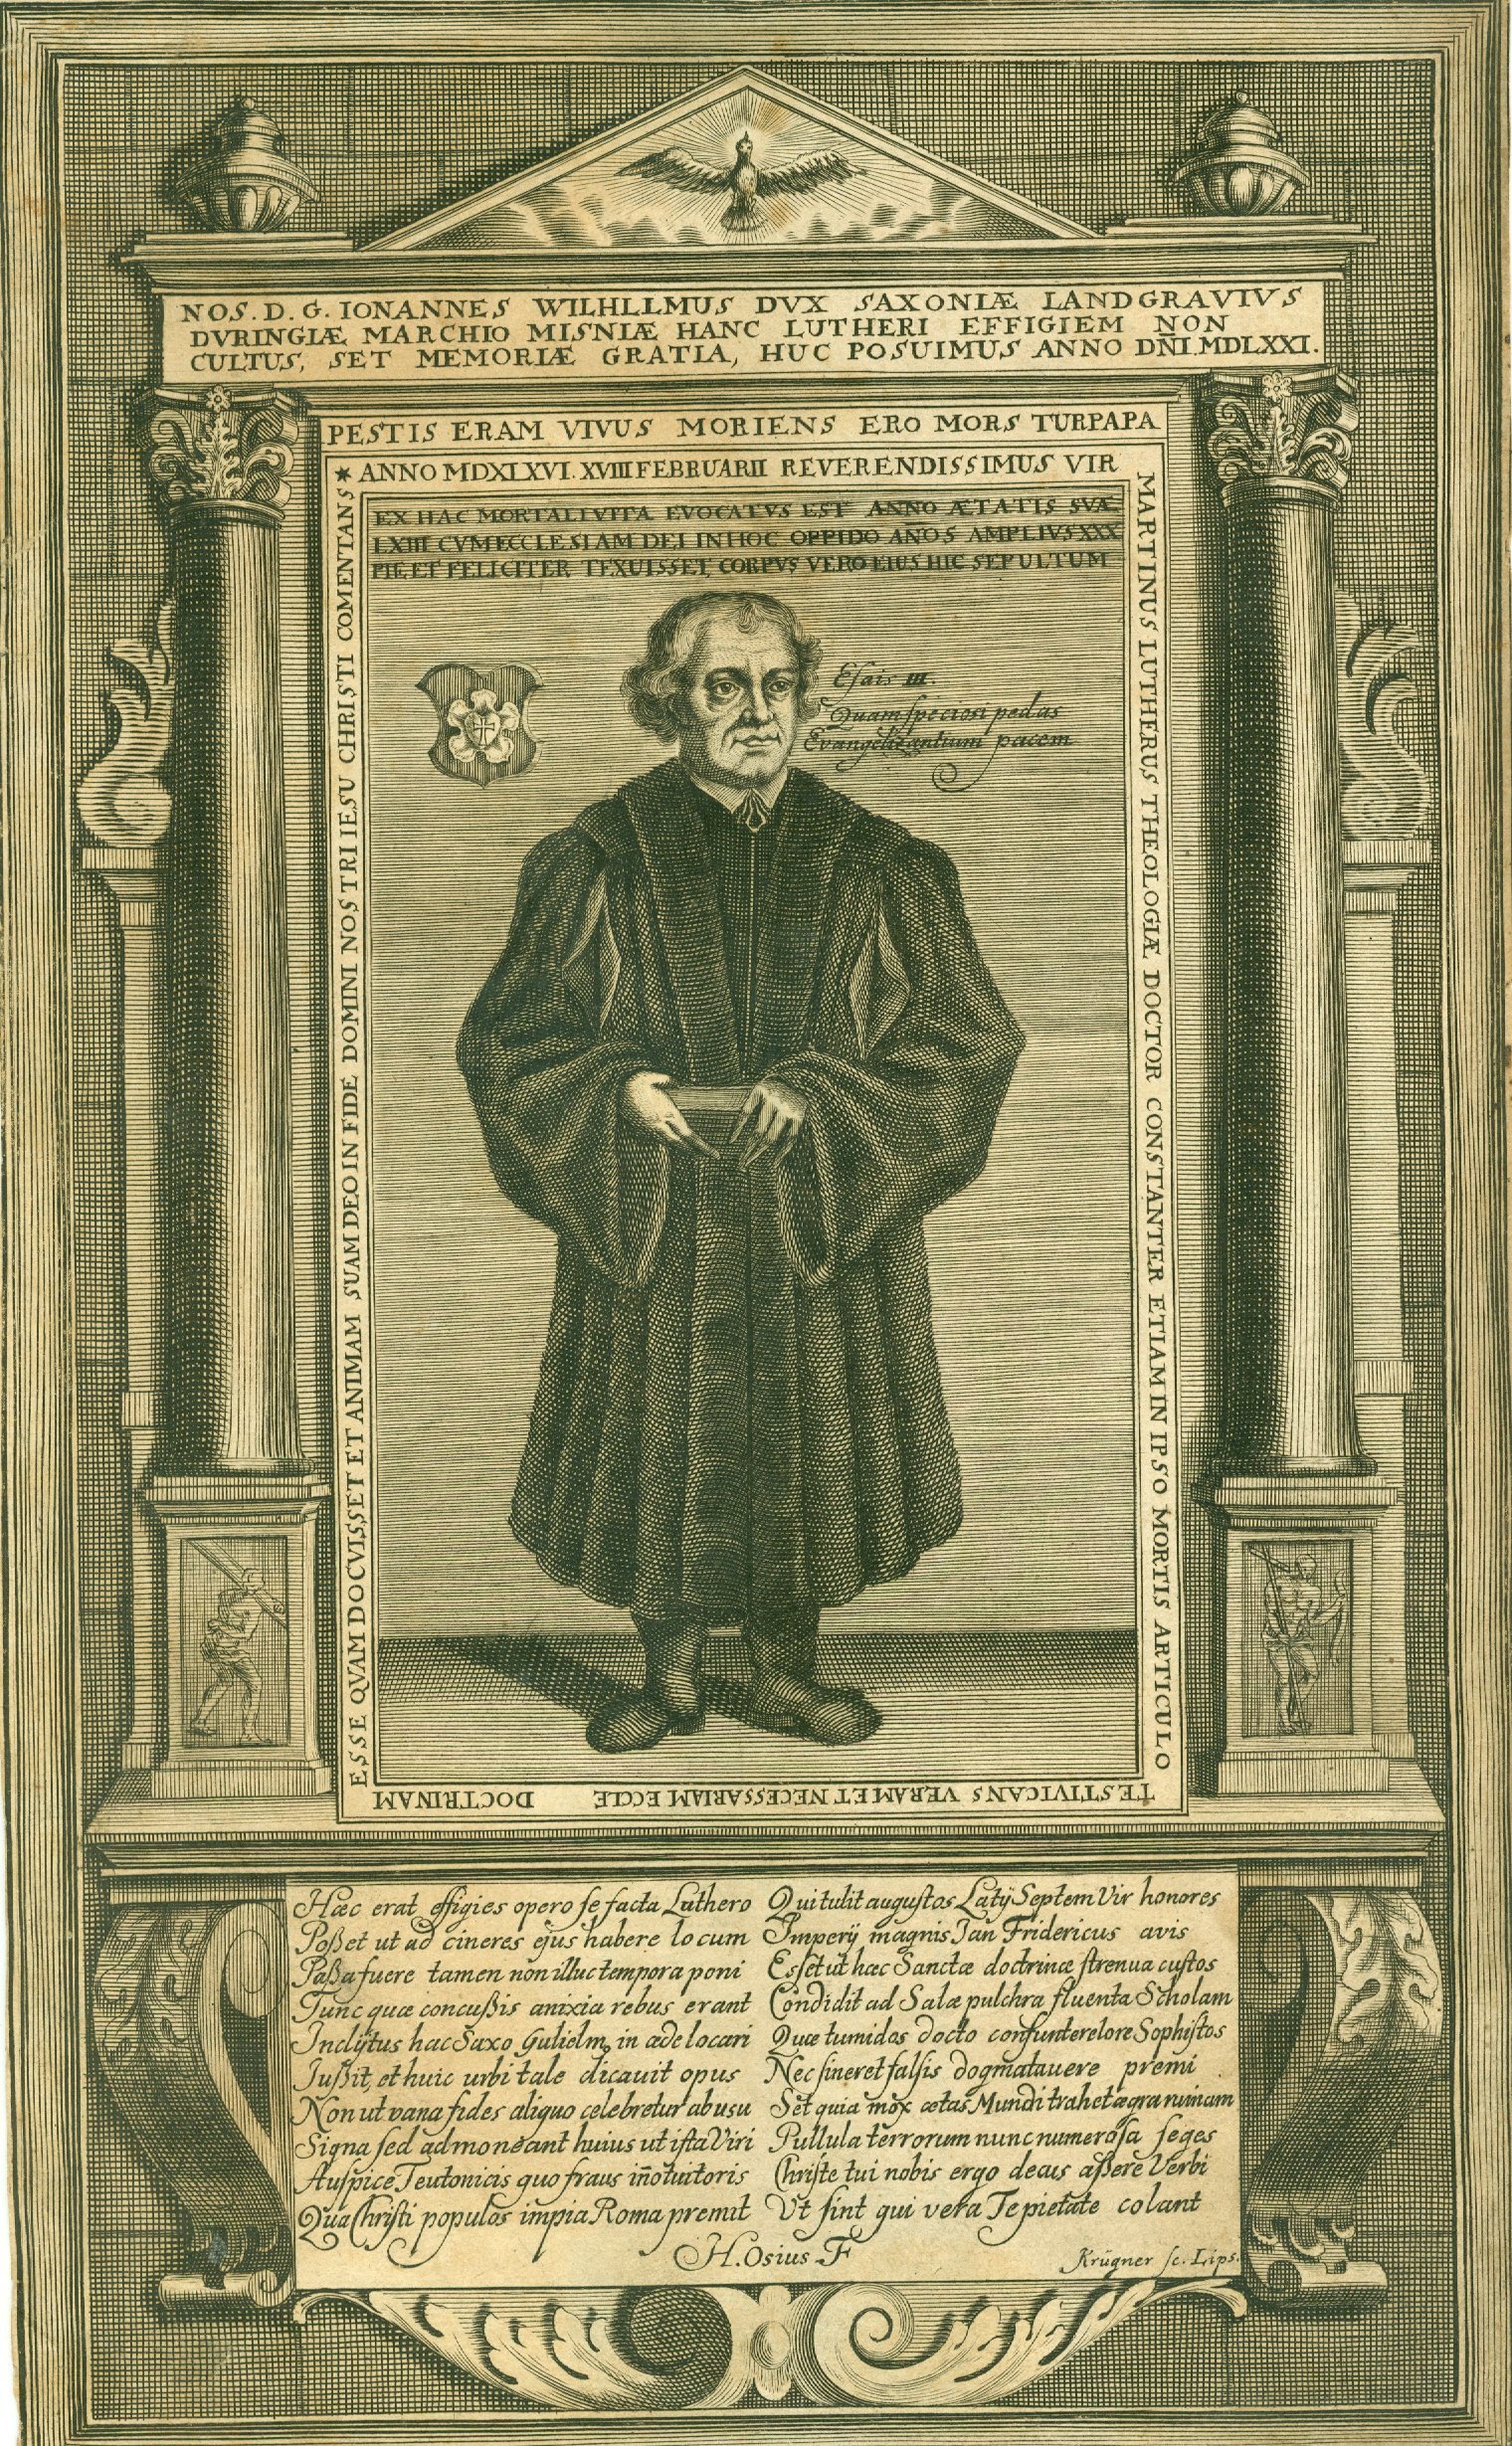 NOS. D. G. IONANNES WILHLLMUS DVX SAXONIÆ LANDGRAVIVS
DVRINGIÆ MARCHIO MISNIÆ HANC LUTHERI EFFIGIEM NON
CULTUS, SET MEMORIÆ GRATIA, HUC POSUIMUS ANNO DN̄I. MDLXXI.
PESTIS ERAM VIVUS MORIENS ERO MORS TUR PAPA
* ANNO MDXLXVI. XVIII FEBRUARII REVERENDISSIMUS VIR
MARTINUS LUTHERUS THEOLOGIÆ DOCTOR CONSTANTER ETIAM IN IPSO MORTIS ARTICULO
TESTIVICANS VERAM ET NECESSARIAM ECCLE DOCTRINAM
ESSE QVAM DOCVISSET ET ANIMAM SUAM DEO IN FIDE DOMINI NOSTRI IESU CHRISTI COMENTANS
EX HAC MORTALI VITA EVOCATVS EST ANNO ÆTATIS SVÆ
LXIII CVM ECCLESIAM DEI IN HOC OPPIDO AÑOS AMPLIVS XXX
PIE ET FELICITER TEXUISSET, CORPVS VERO EIUS HIC SEPULTUM
Esais III.
Quam speciosi pedas
Evangelizantium pacem
Hæc erat effigies opero se facta Luthero
Poßet ut ad cineres ejus habere locum
Paßa fuere tamen non illuc tempora poni
Tunc quæ concußis anixia rebus erant
Inclÿtus hac Saxo Gulielm9 in æde locari
Jußit, et huic urbi tale dicauit opus
Non ut vana fides aliquo celebretur abusu
Signa sed admoneant huius ut ista Viri
Auspice Teutonicis quo fraus iñotuit oris
Qua Christi populos impia Roma premit
Qui tulit augustos Latÿ Septem Vir honores
Imperÿ magnis Ian Fridericus avis
Esset ut hæc Sanctæ doctrinæ strenua custos
Condidit ad Salæ pulchra fluenta Scholam
Quæ tumidos docto confunterelore Sophistos
Nec sineret falsis dogmata uere premi
Set quia mox ætas Mundi trahet ægra ruinam
Pullula terrorum nunc numerosa seges
Christe tui nobis ergo decus aßere Verbi
Vt sint qui vera Te pietate colant
H. Osius. F
Krügner sc. Lips.